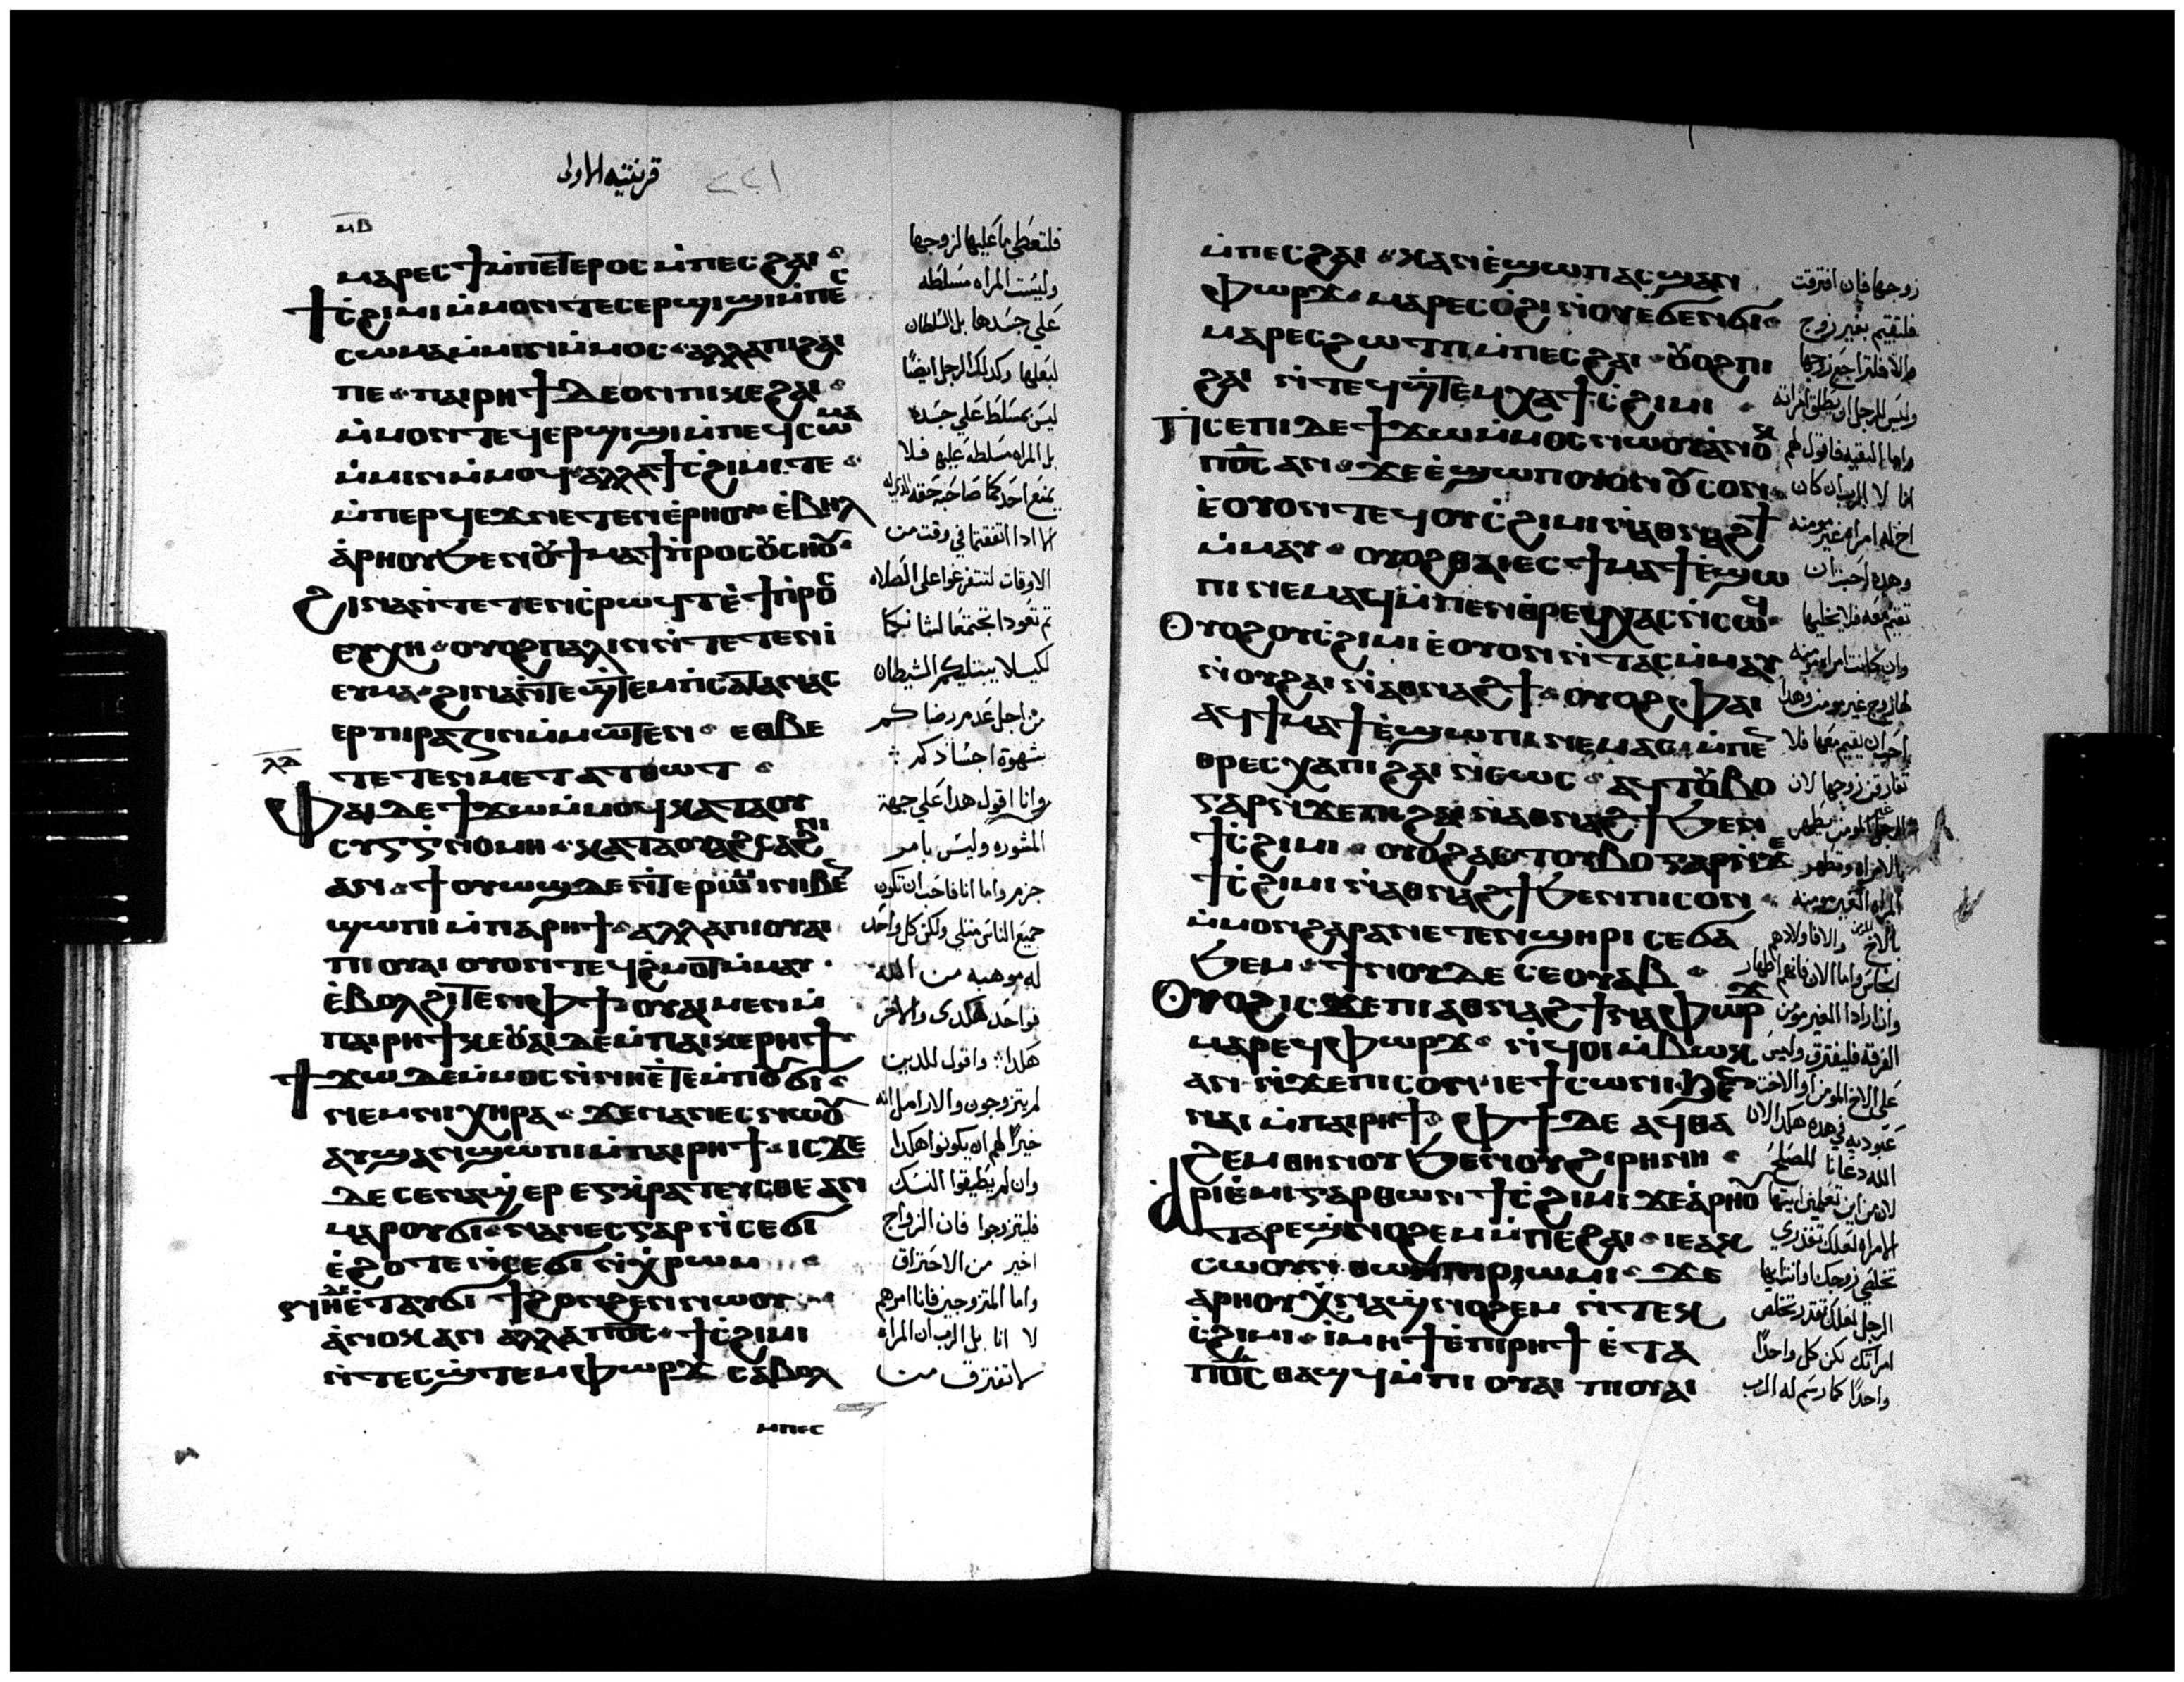 قرنتيه الاولى
ⲙⲃ
ⲙⲁⲣⲉⲥϯⲙ̀ⲡⲉⲧⲉⲣⲟⲥ ⲙ̀ⲡⲉⲥϩⲁⲓ
ϯⲥ̀ϩⲓⲙⲓ ⲙ̀ⲙⲟⲛⲧⲉⲥⲉⲣϣⲓϣⲓ ⲙ̀ⲡⲉⲥ
ⲥⲱⲙⲁ ⲙ̀ⲙⲓⲛⲙ̀ⲙⲟⲥ ⲁⲗⲗⲁ ⲡⲓϩⲁⲓ
ⲡⲉ ⲡⲁⲓⲣⲏϯ ⲇⲉ ⲟⲛ ⲡⲓⲕⲉϩⲁⲓ
ⲙ̀ⲙⲟⲛⲧⲉϥⲉⲣϣⲓϣⲓ ⲙ̀ⲡⲉϥⲥⲱⲙⲁ
ⲙ̀ⲙⲓⲛⲙ̀ⲙⲟϥ ⲁⲗⲗⲁ ϯⲥ̀ϩⲓⲙⲓ ⲧⲉ
ⲙ̀ⲡⲉⲣϥⲉϫ ⲛⲉⲧⲉⲛⲉ̀ⲣⲏⲟⲩ ⲉ̀ⲃⲏⲗ
ⲁ̀ⲣⲏⲟⲩ ϧⲉⲛ ⲟⲩϯⲙⲁϯ ⲡⲣⲟⲥ ⲟⲩⲥⲏⲟⲩ
ϩⲓⲛⲁ ⲛ̀ⲧⲉⲧⲉⲛⲥ̀ⲣⲱϥⲧ ⲉ̀ϯⲡⲣⲟⲥ
ⲉⲩⲭⲏ ⲟⲩⲟϩ ⲡⲁⲗⲓⲛ ⲛ̀ⲧⲉⲧⲉⲛⲓ̀
ⲉⲩⲙⲁ ϩⲓⲛⲁ ⲛ̀ⲧⲉϣ̀ⲧⲉⲙⲡⲥⲁⲧⲁⲛⲁⲥ
ⲉⲣⲡⲓⲣⲁⲍⲓⲛ ⲙ̀ⲙⲱⲧⲉⲛ ⲉⲑⲃⲉ
ⲧⲉⲧⲉⲛⲙⲉⲧⲁⲧⲑⲱⲧ
ⲫⲁⲓ ⲇⲉ ϯϫⲱ ⲙ̀ⲙⲟϥ ⲕⲁⲧⲁ ⲟⲩ
ⲥⲩⲅⲅ̀ⲛⲟⲙⲏ ⲕⲁⲧⲁ ⲟⲩⲁϩⲥⲁϩⲛⲓ
ⲁⲛ ϯⲟⲩⲱϣ ⲇⲉ ⲛ̀ⲧⲉ ⲣⲱⲙⲓ ⲛⲓⲃⲉⲛ
ϣⲱⲡⲓ ⲙ̀ⲡⲁⲣⲏϯ ⲁⲗⲗⲁ ⲡⲓⲟⲩⲁⲓ
ⲡⲓⲟⲩⲁⲓ ⲟⲩⲟⲛⲧⲉϥ ϩ̀ⲙⲟⲧ ⲙ̀ⲙⲁⲩ
ⲉ̀ⲃⲟⲗϩⲓⲧⲉⲛ ⲫϯ ⲟⲩⲁⲓ ⲙⲉⲛ ⲙ̀
ⲡⲁⲓⲣⲏϯ ⲕⲉⲟⲩⲁⲓ ⲇⲉ ⲙ̀ⲡⲁⲓⲕⲉⲣⲏϯ
ϯϫⲱ ⲇⲉ ⲙ̀ⲙⲟⲥ ⲛ̀ⲛⲏⲉ̀ⲧⲉⲙⲡⲟⲩϭⲓ
ⲛⲉⲙ ⲛⲓⲭⲏⲣⲁ ϫⲉ ⲛⲁⲛⲉⲥ ⲛⲱⲟⲩ
ⲁⲩϣⲁⲛϣⲱⲡⲓ ⲙ̀ⲡⲁⲓⲣⲏϯ ⲓⲥϫⲉ
ⲇⲉ ⲥⲉⲛⲁϣ̀ⲉⲣⲉⲅⲕ̀ⲣⲁⲧⲉⲩⲥⲑⲉ ⲁⲛ
ⲙⲁⲣⲟⲩϭⲓ ⲛⲁⲛⲉⲥ ⲅⲁⲣ ⲛ̀ⲥⲉϭⲓ
ⲉ̀ϩⲟⲧⲉ ⲛ̀ⲥⲉϭⲓ ⲛ̀ⲭ̀ⲣⲱⲙ
ⲛⲏ ⲇⲉ ⲉ̀ⲧⲁⲩϭⲓ ϯϩⲟⲛϩⲉⲛ ⲛⲱⲟⲩ
ⲁ̀ⲛⲟⲕ ⲁⲛ ⲁⲗⲗⲁ ⲡⲟ̅ⲥ̅ ϯⲥ̀ϩⲓⲙⲓ
ⲛ̀ⲧⲉⲥϣ̀ⲧⲉⲙⲫⲱⲣϫ ⲥⲁⲃⲟⲗ
ⲙⲡⲉⲥ
فلتعطي ما عليها لزوجها
وليست المراه مسلطه
على جسدها بل السلطان
لبعلها وكدلك الرجل ايضًا
ليس بمسلط على جسده
بل المراه مسلطه عليه فلا
الا ادا اتفقتما في وقت من
الاوقات لتتفرغوا على الصلاه
لكيلا يبتليكم الشيطان
من اجل عدم رضاكم
بشهوة اجسادكم
وانا اقول هدا على جهة
المشوره وليس بامر
جزم واما انا فاحب ان تكون
جميع الناس مثلي ولكن كل واحد
له موهبه من الله
فواحد هكدى والاخر
هكدا واقول للدين
لم يتزوجون والارامل انه
خيرًا لهم ان يكونوا هكدا
وان لم يطيقوا النسك
فليتزوجوا فان الزواج
اخير من الاحتراق
واما المتزوجين فانا امرهم
لا انا بل الرب ان المراه
لا تفترق من
ⲙ̀ⲡⲉⲥϩⲁⲓ ⲕⲁⲛ ⲉ̀ϣⲱⲡ ⲁⲥϣⲁⲛ
ⲫⲱⲣϫ ⲙⲁⲣⲉⲥⲟ̀ϩⲓ ⲛ̀ⲟⲩⲉϭⲉⲛϭⲓ
ⲙⲁⲣⲉⲥϩⲱⲧⲡ ⲙ̀ⲡⲉⲥϩⲁⲓ ⲟⲩⲟϩ ⲡⲓ
ϩⲁⲓ ⲛ̀ⲧⲉϥϣ̀ⲧⲉⲙⲭⲁ ϯⲥ̀ϩⲓⲙⲓ
ⲡ̀ⲥⲉⲡⲓ ⲇⲉ ϯϫⲱ ⲙ̀ⲙⲟⲥ ⲛⲱⲟⲩ ⲁ̀ⲛⲟⲕ
ⲡⲟ̅ⲥ̅ ⲁⲛ ϫⲉ ⲉ̀ϣⲱⲡ ⲟⲩⲟⲛ ⲟⲩⲥⲟⲛ
ⲉ̀ⲟⲩⲟⲛⲧⲉϥ ⲟⲩⲥ̀ϩⲓⲙⲓ ⲛ̀ⲁⲑⲛⲁϩϯ
ⲙ̀ⲙⲁⲩ ⲟⲩⲟϩ ⲑⲁⲓ ⲉⲥϯⲙⲁϯ ⲉ̀ϣⲱ
ⲡⲓ ⲛⲉⲙⲁϥ ⲙ̀ⲡⲉⲛⲑⲣⲉϥⲭⲁⲥ ⲛ̀ⲥⲱϥ
ⲟⲩⲟϩ ⲟⲩⲥ̀ϩⲓⲙⲓ ⲉ̀ⲟⲩⲟⲛ ⲛ̀ⲧⲁⲥ ⲙ̀ⲙⲁⲩ
ⲛ̀ⲟⲩϩⲁⲓ ⲛ̀ⲁⲑⲛⲁϩϯ ⲟⲩⲟϩ ⲫⲁⲓ
ⲁϥϯⲙⲁϯ ⲉ̀ϣⲱⲡⲓ ⲛⲉⲙⲁⲥ ⲙ̀ⲡⲉⲛ
ⲑⲣⲉⲥⲭⲁ ⲡⲓϩⲁⲓ ⲛ̀ⲥⲱⲥ ⲁϥⲧⲟⲩⲃⲟ
ⲅⲁⲣ ⲛ̀ϫⲉ ⲡⲓϩⲁⲓ ⲛ̀ⲁⲑⲛⲁϩϯ ϧⲉⲛ
ϯⲥ̀ϩⲓⲙⲓ ⲟⲩⲟϩ ⲁⲥⲧⲟⲩⲃⲟ ⲅⲁⲣ ⲛ̀ϫⲉ
ϯⲥ̀ϩⲓⲙⲓ ⲛ̀ⲁⲑⲛⲁϩϯ ϧⲉⲛ ⲡⲓⲥⲟⲛ
ⲙ̀ⲙⲟⲛ ϩⲁⲣⲁ ⲛⲉⲧⲉⲛϣⲏⲣⲓ ⲥⲉϭⲁ
ϧⲉⲙ ϯⲛⲟⲩ ⲇⲉ ⲥⲉⲟⲩⲁⲃ
ⲟⲩⲟϩ ⲓⲥϫⲉ ⲡⲓⲁⲑⲛⲁϩϯ ⲛⲁⲫⲱⲣϫ
ⲙⲁⲣⲉϥⲫⲱⲣϫ ⲛ̀ϥⲟⲓ ⲙ̀ⲃⲱⲕ
ⲁⲛ ⲛ̀ϫⲉ ⲡⲓⲥⲟⲛ ⲓⲉ ϯⲥⲱⲛⲓ ϧⲉⲛ
ⲛⲁⲓ ⲙ̀ⲡⲁⲓⲣⲏϯ ⲫϯ ⲇⲉ ⲁϥⲑⲁ
ϩⲉⲙ ⲑⲏⲛⲟⲩ ϧⲉⲛ ⲟⲩϩⲓⲣⲏⲛⲏ
ⲁ̀ⲣⲓⲉ̀ⲙⲓ ⲅⲁⲣ ⲑⲱⲛ ϯⲥ̀ϩⲓⲙⲓ ϫⲉ ⲁ̀ⲣⲏⲟⲩ
ⲧⲁⲣⲉϣ̀ⲛⲟϩⲉⲙ ⲙ̀ⲡⲉϩⲁⲓ ⲓⲉ ⲁⲕ
ⲥⲱⲟⲩⲛ ⲑⲱⲛ ⲡⲓⲣⲱⲙⲓ ϫⲉ
ⲁⲣⲏⲟⲩ ⲭ̀ⲛⲁϣ̀ⲛⲟϩⲉⲙ ⲛ̀ⲧⲉⲕ
ⲥ̀ϩⲓⲙⲓ ⲓⲙⲏϯ ⲉ̀ⲡⲓⲣⲏϯ ⲉ̀ⲧⲁ
ⲡⲟ̅ⲥ̅ ⲑⲁϣϥ ⲙ̀ⲡⲓⲟⲩⲁⲓ ⲡⲓⲟⲩⲁⲓ
زوجها فان افترقت
فلتقيم بغير زوج
والا فلتراجع زوجها
وليس للرجل ان يطلق امراته
واما البقيه فاقول لهم
انا لا الرب ان كان
اخ له امراه غير مومنه
تقيم معه فلا يخليها
وان كانت امراه مومنه
لها زوج غير مومن وهدا
احب ان يقيم معها فلا
تفارقن زوجها لان
بالامراه وتطهر
المراه الغير مومنه
بالاخ والا فاولادهم
انجاس واما الان فانهم اطهار
وان اراد الغير مومن
الفرقه فليفترق وليس
على الاخ المومن او الاخت
عبوديه في هده هكدا لان
الله دعانا للصلح
لان من اين تعلمين ايتها
المراه لعلك تقدري
تخلصي زوجك او انت ايها
الرجل لعلك تقدر تخلص
امراتك لكن كل واحدًا
واحدًا كما رسم له الرب